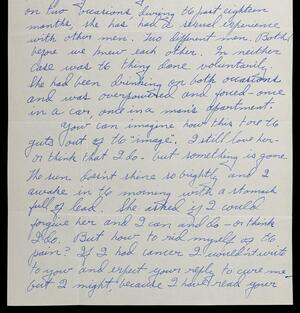 on two occasions, during the past eighteen
months, she has had a sexual experience
with other men. Two different men. Both
before we knew each other. In neither
case was the thing done voluntarily.
She had been drinking on both occasions
and was overpowered and forced - once
in a car, once in a man's apartment.
You can imagine how this tore the
guts out of the "image". I still love her -
or think that I do. but something is gone.
The sun doesn't shine so brightly and I
awake in the morning with a stomach
full of lead. She asked if I could
forgive her and I can and do - or think
I do. But how to rid myself of the
pain? If I had cancer I wouldn't write
to you and expect your reply to cure me
but I might, because I have read your